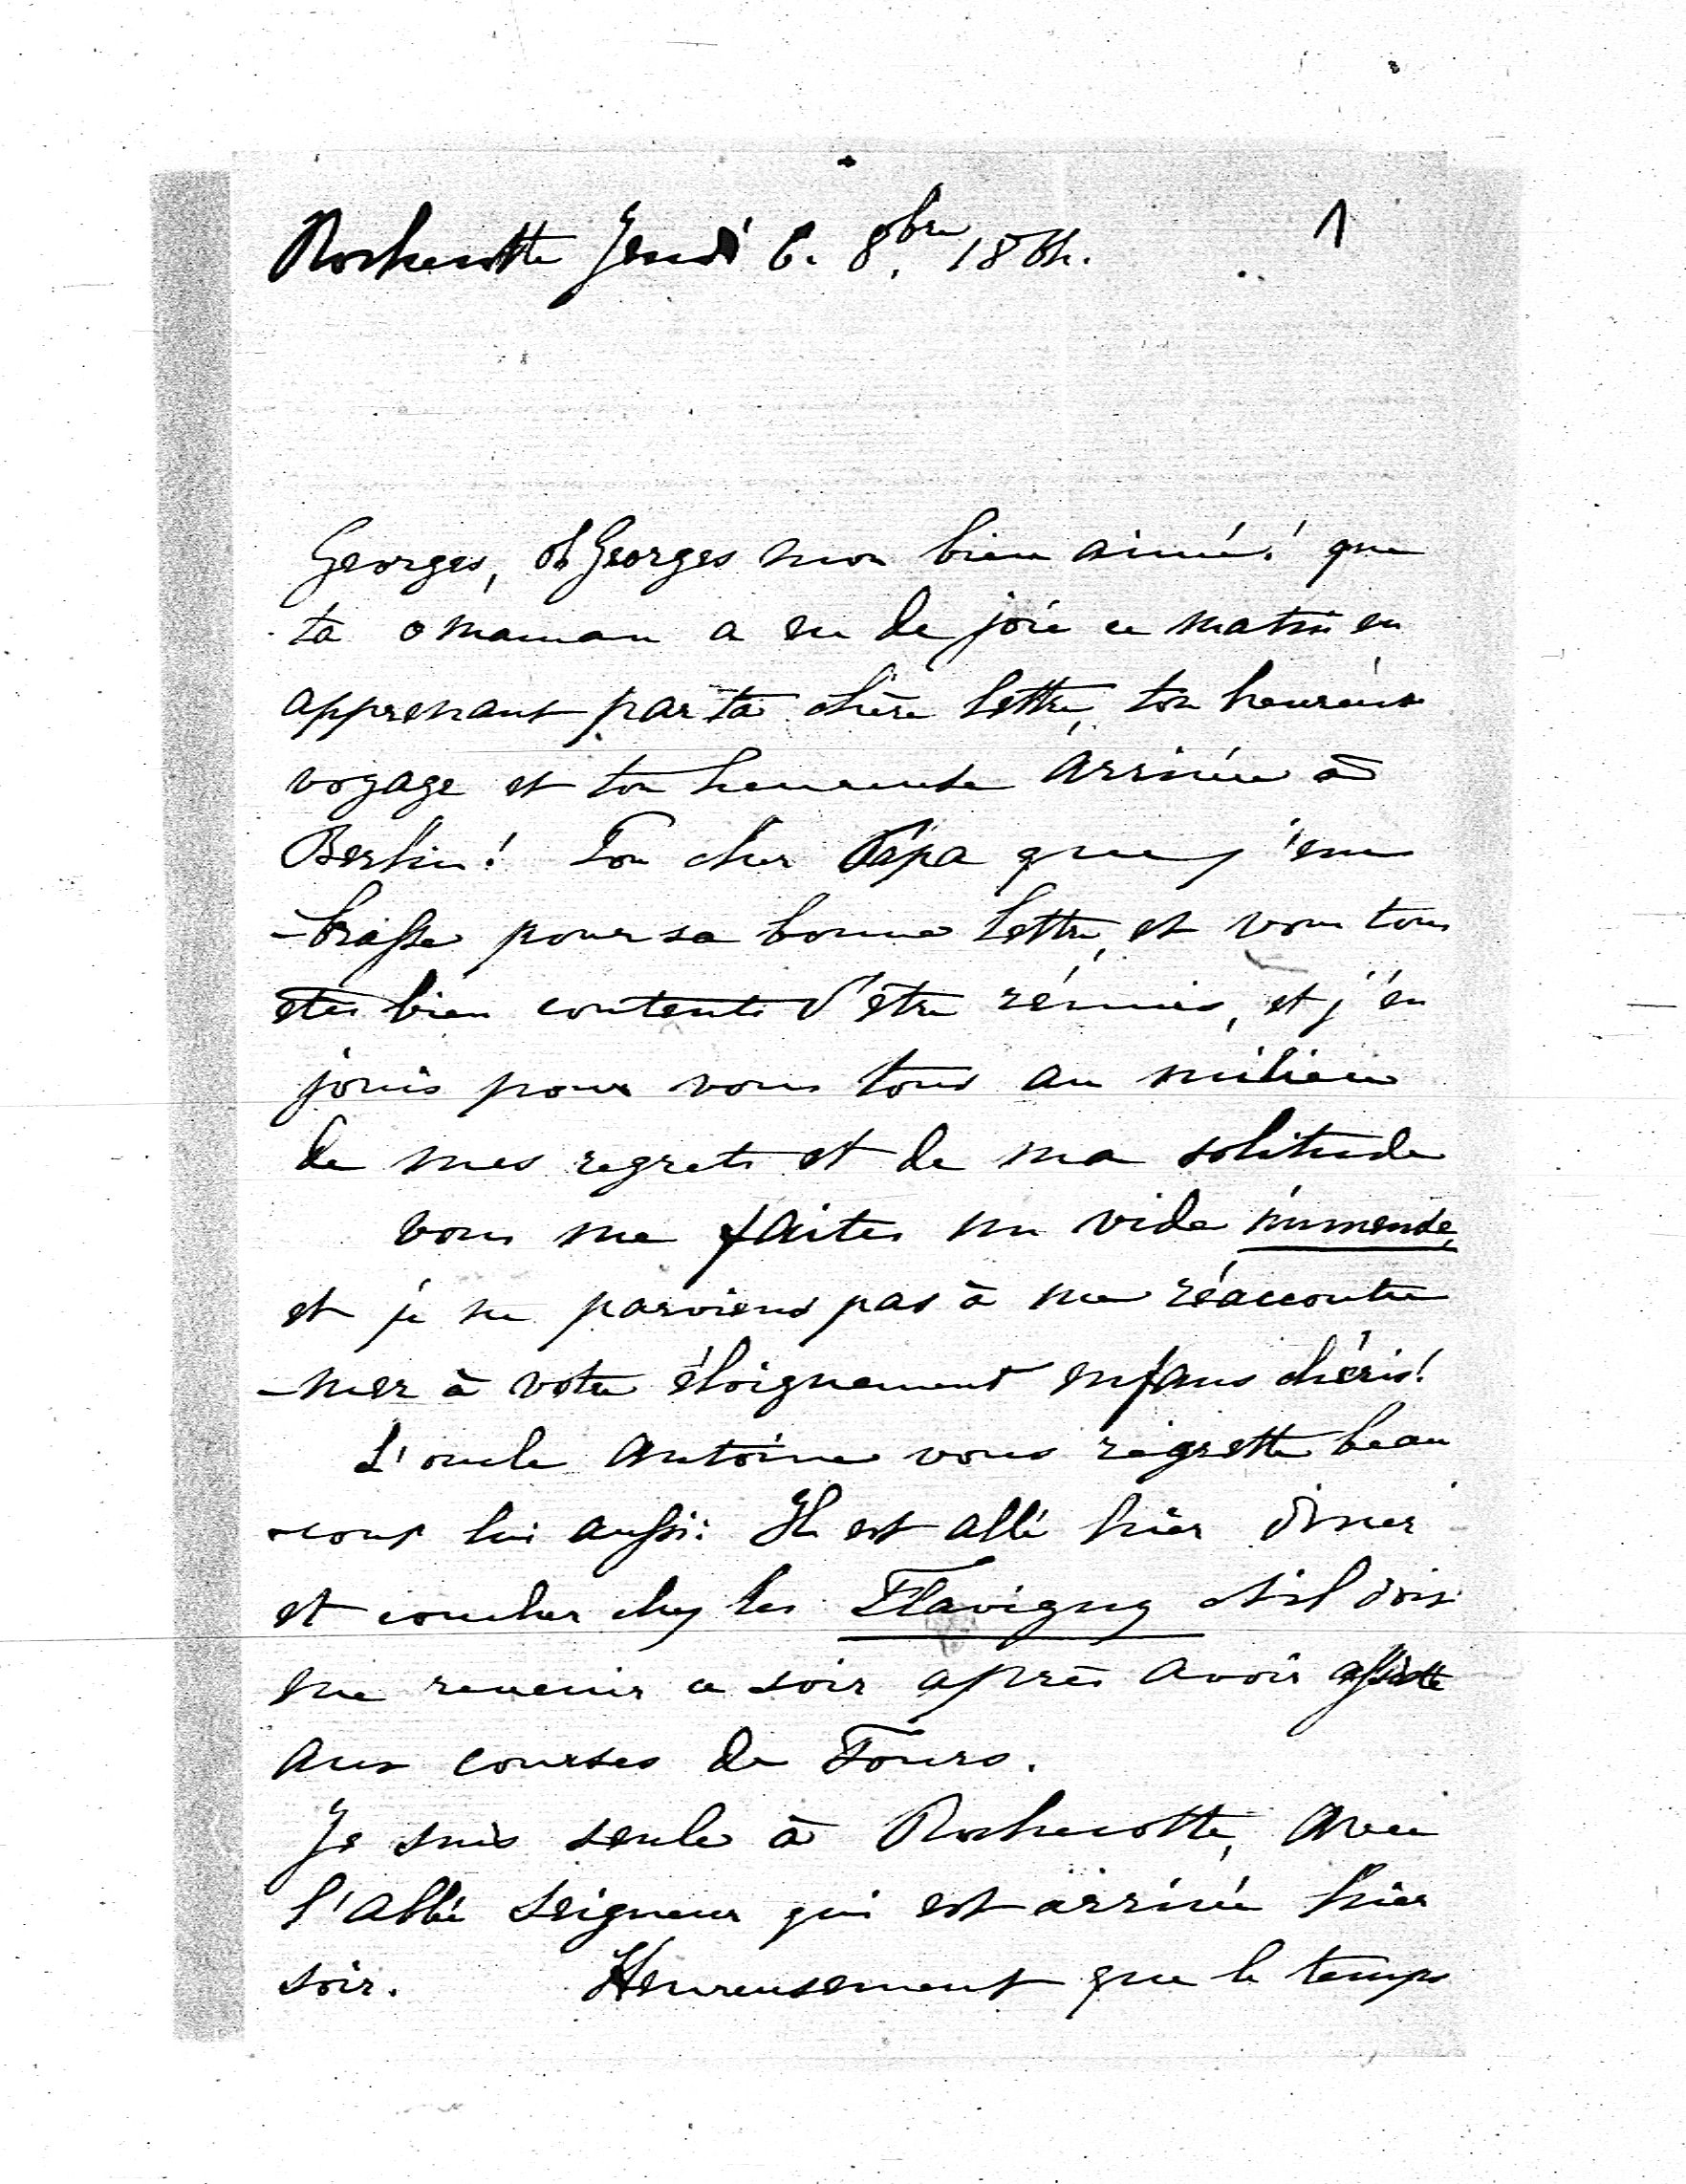 Rochecotte Jeudi 6. 8bre 1864.
1
Georges, oh Georges mon bien aimé! que
ta omaman a eu de joie ce matin en
apprenant par ta chère lettre, ton heureux
voyage et ton heureuse arrivée à
Berlin! Ton cher Papa que j'em
-brasse pour sa bonne lettre, et vous tous
etes bien contents d'etre réunis, et j'en
jouis pour vous tous au milieu
de mes regrets et de ma solitude
vous me faites un vide immense,
et je ne parviens pas à me réaccoutu
-mer à votre éloignement enfans chéris!
L'oncle Antoine vous regrette beau
-coup lui aussi: Il est allé hier diner
et coucher chez les Flavigny et il doit
me revenir ce soir après avoir assisté
aux courses de Tours.
Je suis seule à Rochecotte, avec
l'abbé Seigneur qui est arrivé hier
soir. Heureusement que le temps